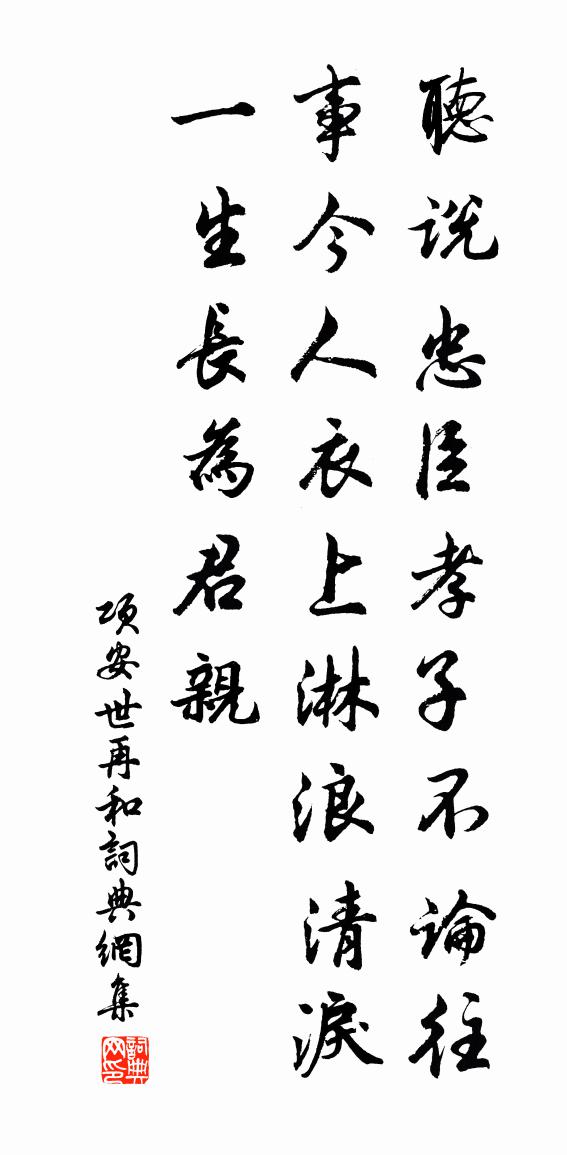 聽說忠臣孝子不論往
事今人衣上淋浪清淚
一生長為君親
項安世再和詞典網集
詞典网印